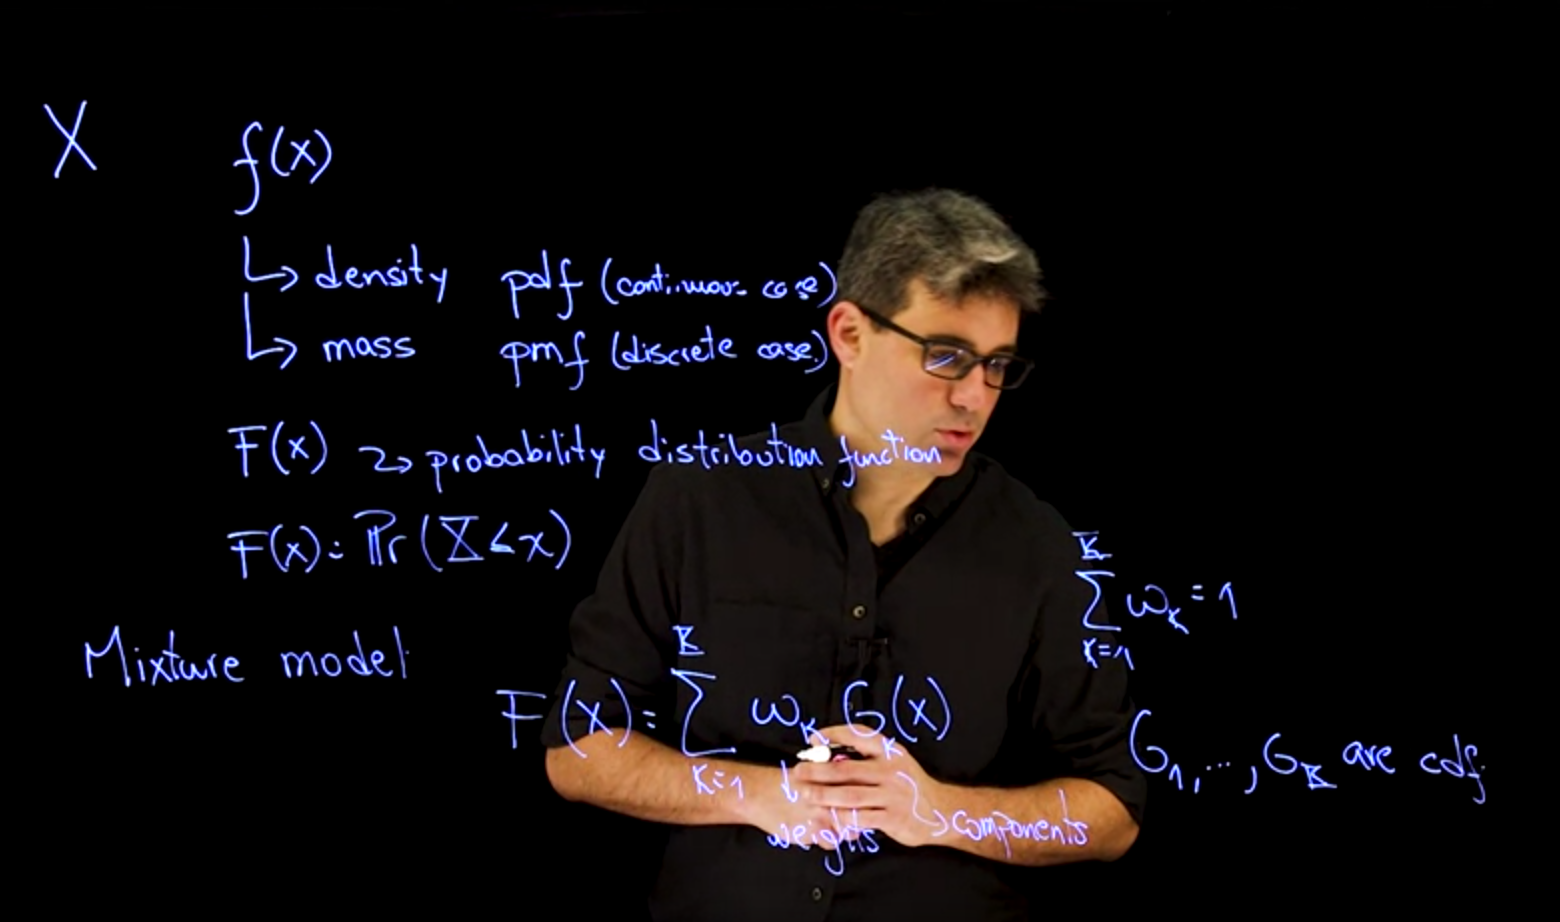 X f(x)
↳ density pdf (continuous case)
↳ mass pmf (discrete case)
F(x) ↝ probability distribution function
F(x) = Pr(X ≤ x)
Mixture model
F(x) = ∑_{k=1}^{K} ω_k G_k(x)
weights
components
∑_{k=1}^{K} ω_k = 1
G_1, ..., G_K are cdf